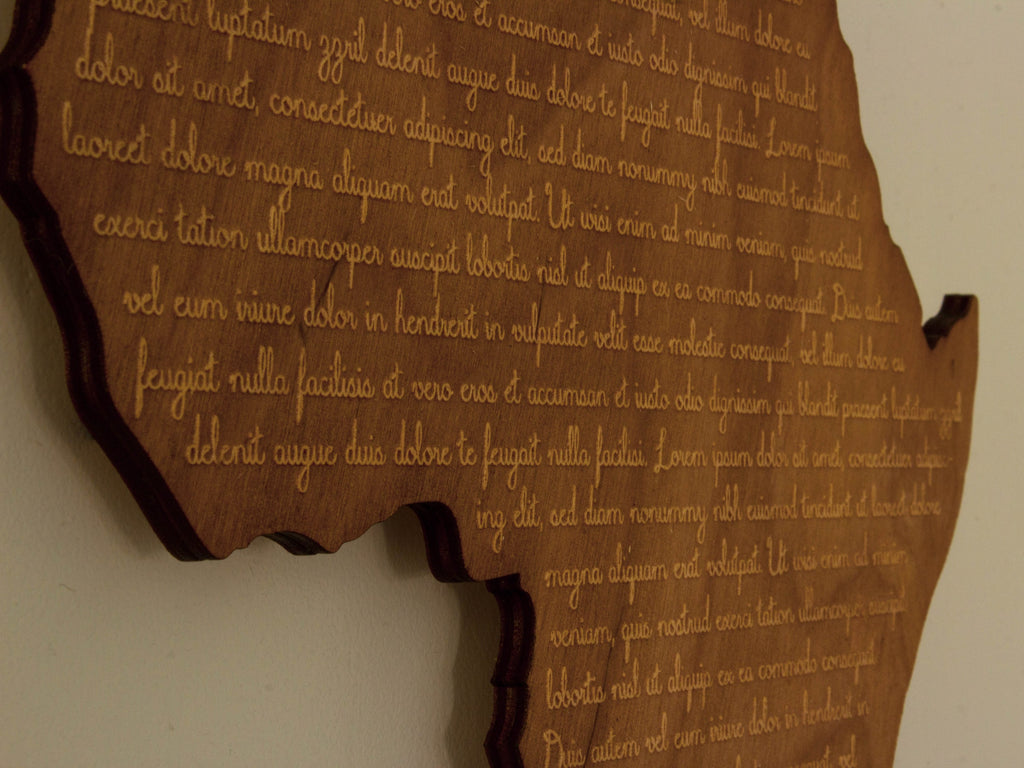 consequat, vel illum dolore eu
vero eros et accumsan et iusto odio dignissim qui blandit
praesent luptatum zzril delenit augue duis dolore te feugait nulla facilisi. Lorem ipsum
dolor sit amet, consectetuer adipiscing elit, sed diam nonummy nibh euismod tincidunt ut
laoreet dolore magna aliquam erat volutpat. Ut wisi enim ad minim veniam, quis nostrud
exerci tation ullamcorper suscipit lobortis nisl ut aliquip ex ea commodo consequat. Duis autem
vel eum iriure dolor in hendrerit in vulputate velit esse molestie consequat, vel illum dolore eu
feugiat nulla facilisis at vero eros et accumsan et iusto odio dignissim qui blandit praesent luptatum zzril
delenit augue duis dolore te feugait nulla facilisi. Lorem ipsum dolor sit amet, consectetuer adipisc-
ing elit, sed diam nonummy nibh euismod tincidunt ut laoreet dolore
magna aliquam erat volutpat. Ut wisi enim ad minim
veniam, quis nostrud exerci tation ullamcorper suscipit
lobortis nisl ut aliquip ex ea commodo consequat.
Duis autem vel eum iriure dolor in hendrerit in
consequat, vel